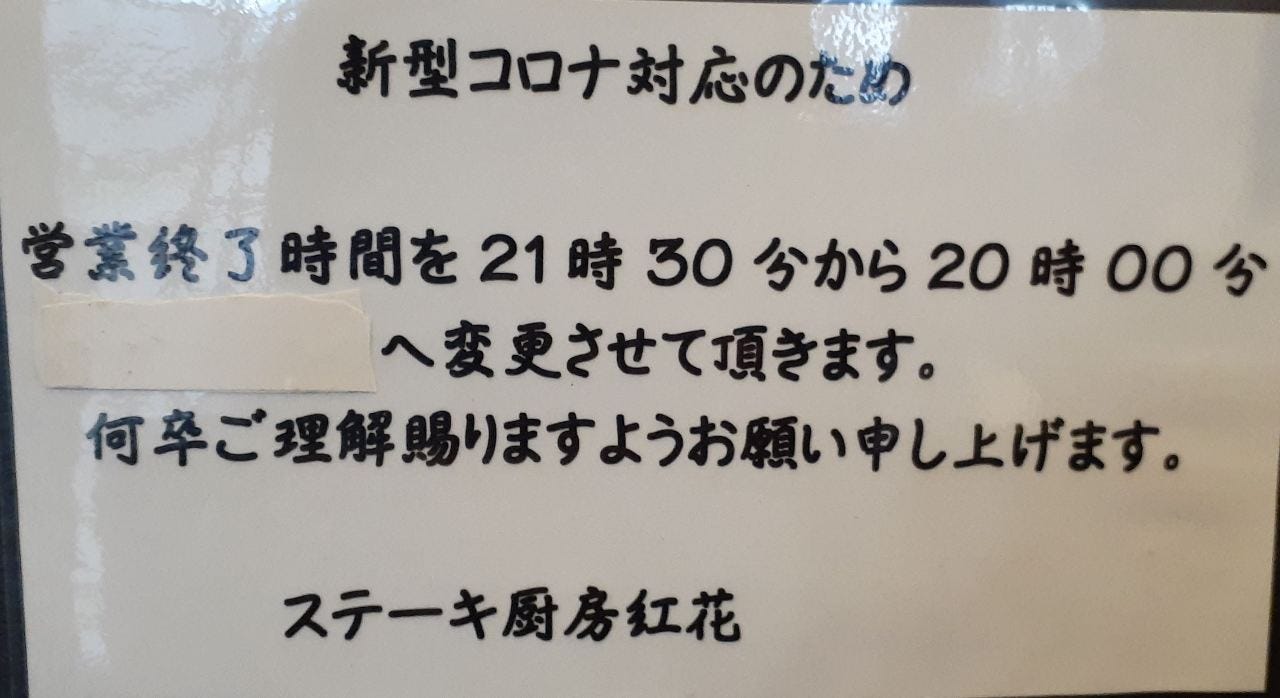 新型コロナ対応のため
営業終了時間を21時30分から20時00分
へ変更させて頂きます。
何卒ご理解賜りますようお願い申し上げます。
ステーキ厨房紅花